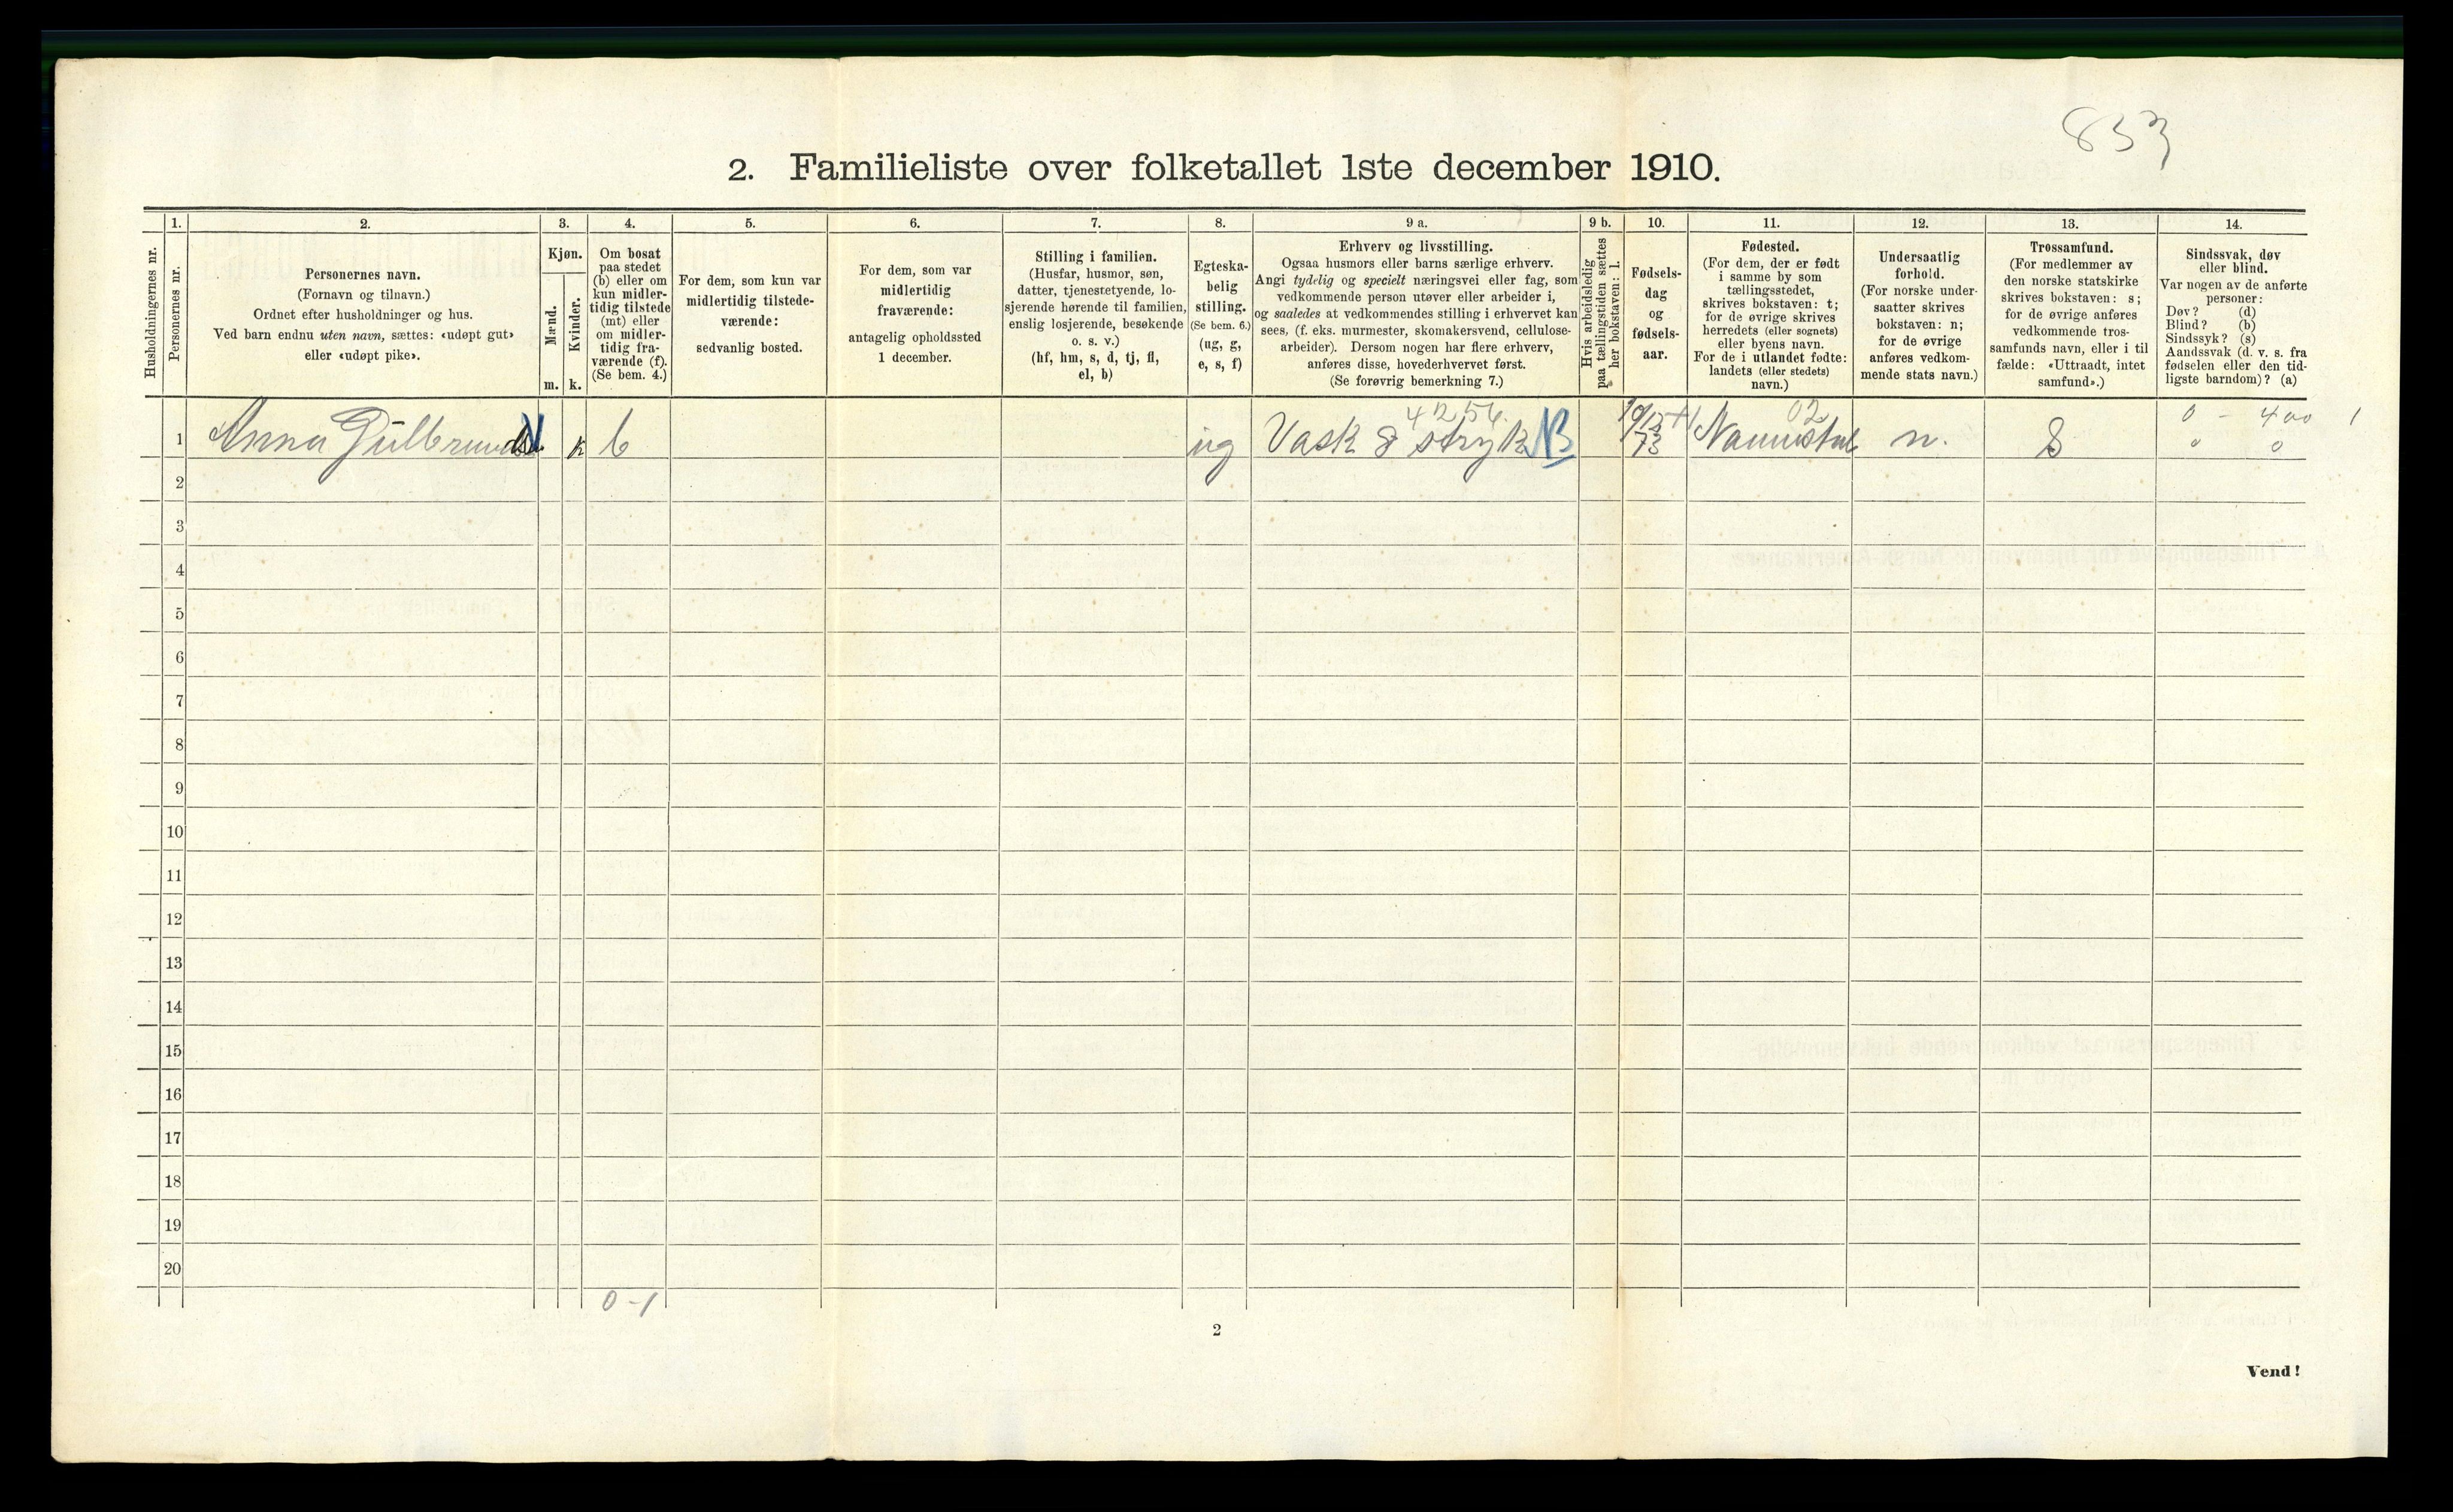 853
2. Familieliste over folketallet 1ste december 1910.
Husholdningernes nr.
1.
Personernes nr.
2.
Personernes navn.
(Fornavn og tilnavn.)
Ordnet efter husholdninger og hus.
Ved barn endnu uten navn, sættes: «udøpt gut»
eller «udøpt pike».
3.
Kjøn.
Mænd.
m.
Kvinder.
k.
4.
Om bosat
paa stedet
(b) eller om
kun midler-
tidig tilstede
(mt) eller
om midler-
tidig fra-
værende (f).
(Se bem. 4.)
5.
For dem, som kun var
midlertidig tilstede-
værende:
sedvanlig bosted.
6.
For dem, som var
midlertidig
fraværende:
antagelig opholdssted
1 december.
7.
Stilling i familien.
(Husfar, husmor, søn,
datter, tjenestetyende, lo-
sjerende hørende til familien,
enslig losjerende, besøkende
o. s. v.)
(hf, hm, s, d, tj, fl,
el, b)
8.
Egteska-
belig
stilling.
(Se bem. 6.)
(ug, g,
e, s, f)
9 a.
Erhverv og livsstilling.
Ogsaa husmors eller barns særlige erhverv.
Angi tydelig og specielt næringsvei eller fag, som
vedkommende person utøver eller arbeider i,
og saaledes at vedkommendes stilling i erhvervet kan
sees, (f. eks. murmester, skomakersvend, cellulose-
arbeider). Dersom nogen har flere erhverv,
anføres disse, hovederhvervet først.
(Se forøvrig bemerkning 7.)
9 b.
Hvis arbeidsledig
paa tællingstiden sættes
her bokstaven: l.
10.
Fødsels-
dag
og
fødsels-
aar.
11.
Fødested.
(For dem, der er født
i samme by som
tællingsstedet,
skrives bokstaven: t;
for de øvrige skrives
herredets (eller sognets)
eller byens navn.
For de i utlandet fødte:
landets (eller stedets)
navn.)
12.
Undersaatlig
forhold.
(For norske under-
saatter skrives
bokstaven: n;
for de øvrige
anføres vedkom-
mende stats navn.)
13.
Trossamfund.
(For medlemmer av
den norske statskirke
skrives bokstaven: s;
for de øvrige anføres
vedkommende tros-
samfunds navn, eller i til
fælde: «Uttraadt, intet
samfund».)
14.
Sindssvak, døv
eller blind.
Var nogen av de anførte
personer:
Døv? (d)
Blind? (b)
Sindssyk? (s)
Aandssvak (d. v. s. fra
fødselen eller den tid-
ligste barndom)? (a)
4256. 02 0 - 400 1
1 Anna k b ug Vask & stryk n. S 0 0
2
3
4
5
6
7
8
9
10
11
12
13
14
15
16
17
18
19
20
0-1
2
Vend!